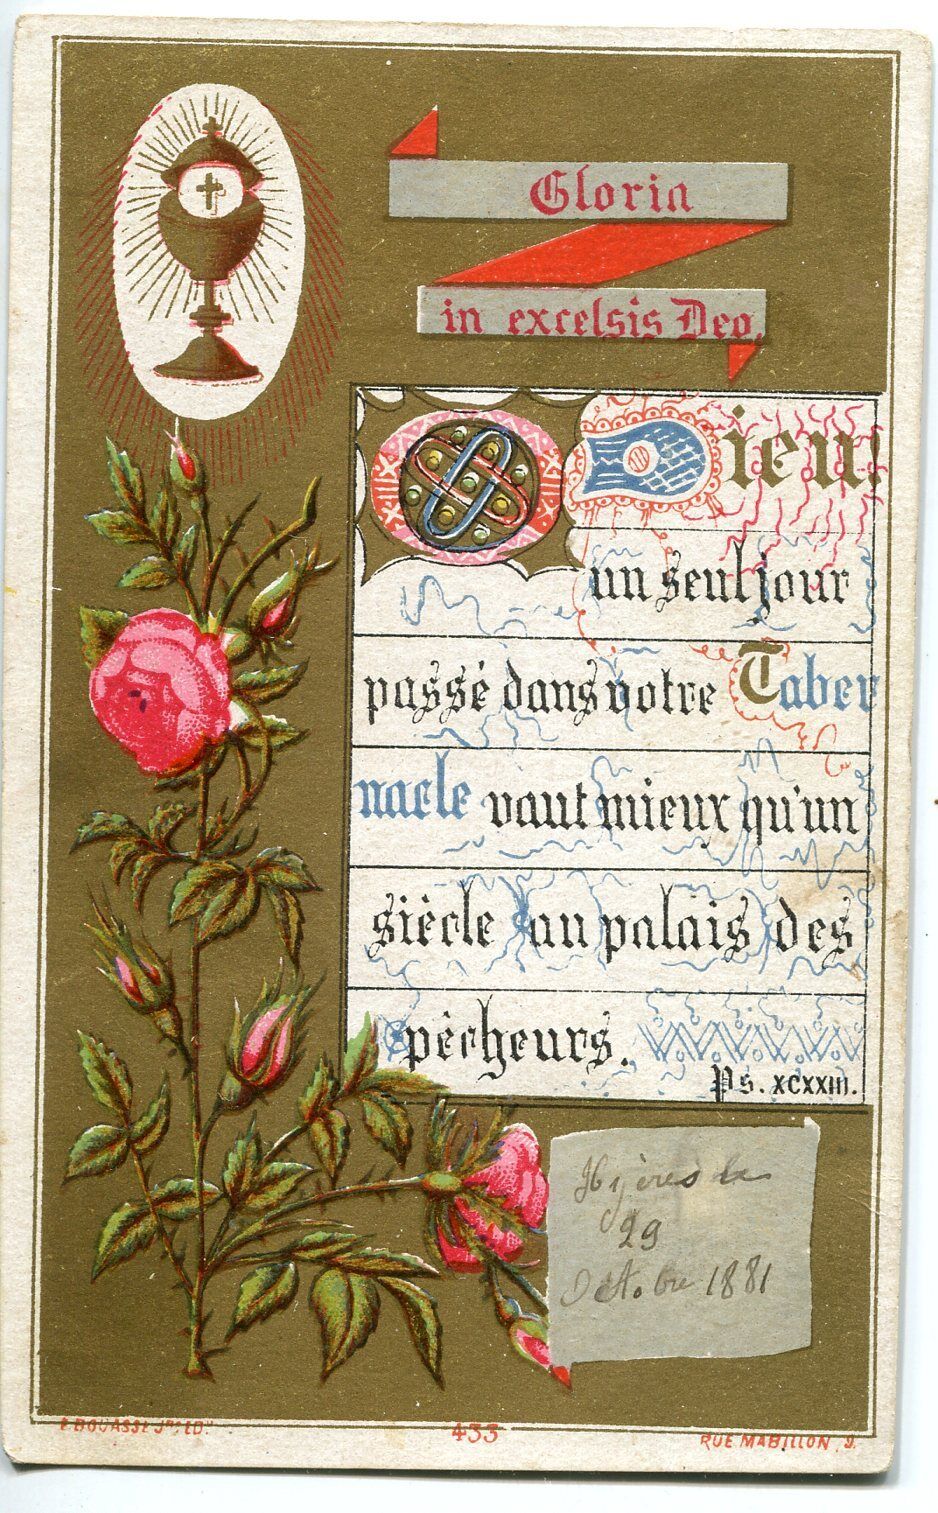 Gloria
in excelsis Deo.
O Dieu!
un seul jour
passé dans votre Taber
nacle vaut mieux qu'un
siècle au palais des
pêcheurs.
Ps. XCXXIII.
Hyères le
29
Octobre 1881
E. BOUASSE Jne ED.r
433
RUE MABILLON, 9.